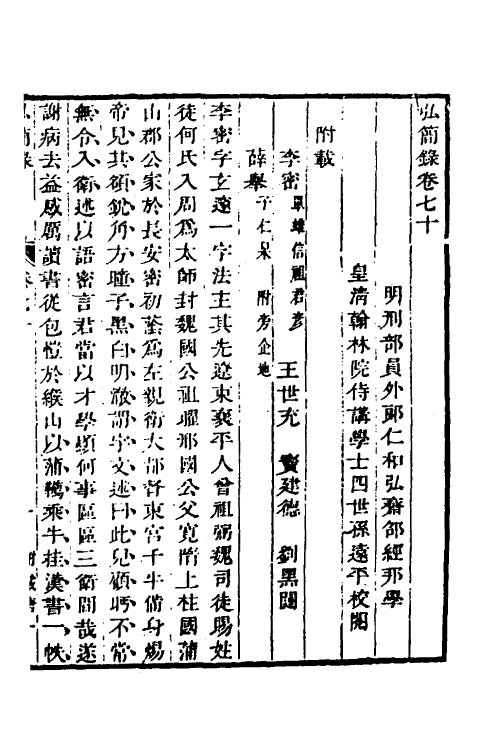 弘簡錄卷七十
明刑部員外郎仁和弘齋邵經邦學
皇清翰林院侍講學士四世孫遠平校閱
附載
李密單雄信祖君彥 王世充 竇建德 劉黑闥
薛舉子仁杲 附旁企地
李密字玄邃一字法主其先遼東襄平人曾祖弼魏司徒賜姓
徒何氏入周爲太師封魏國公祖曜邢國公父寬隋上柱國蒲
山郡公家於長安密初蔭爲左親衛大都督東宮千牛備身煬
帝見其額銳角方瞳子黑白明澈謂宇文述曰此兒顧盻不常
無令入衛述以語密言君當以才學顯何事區區三衛間哉遂
謝病去益感厲讀書從包愷於緱山以蒲韉乘牛挂漢書一帙
弘簡錄 卷七十